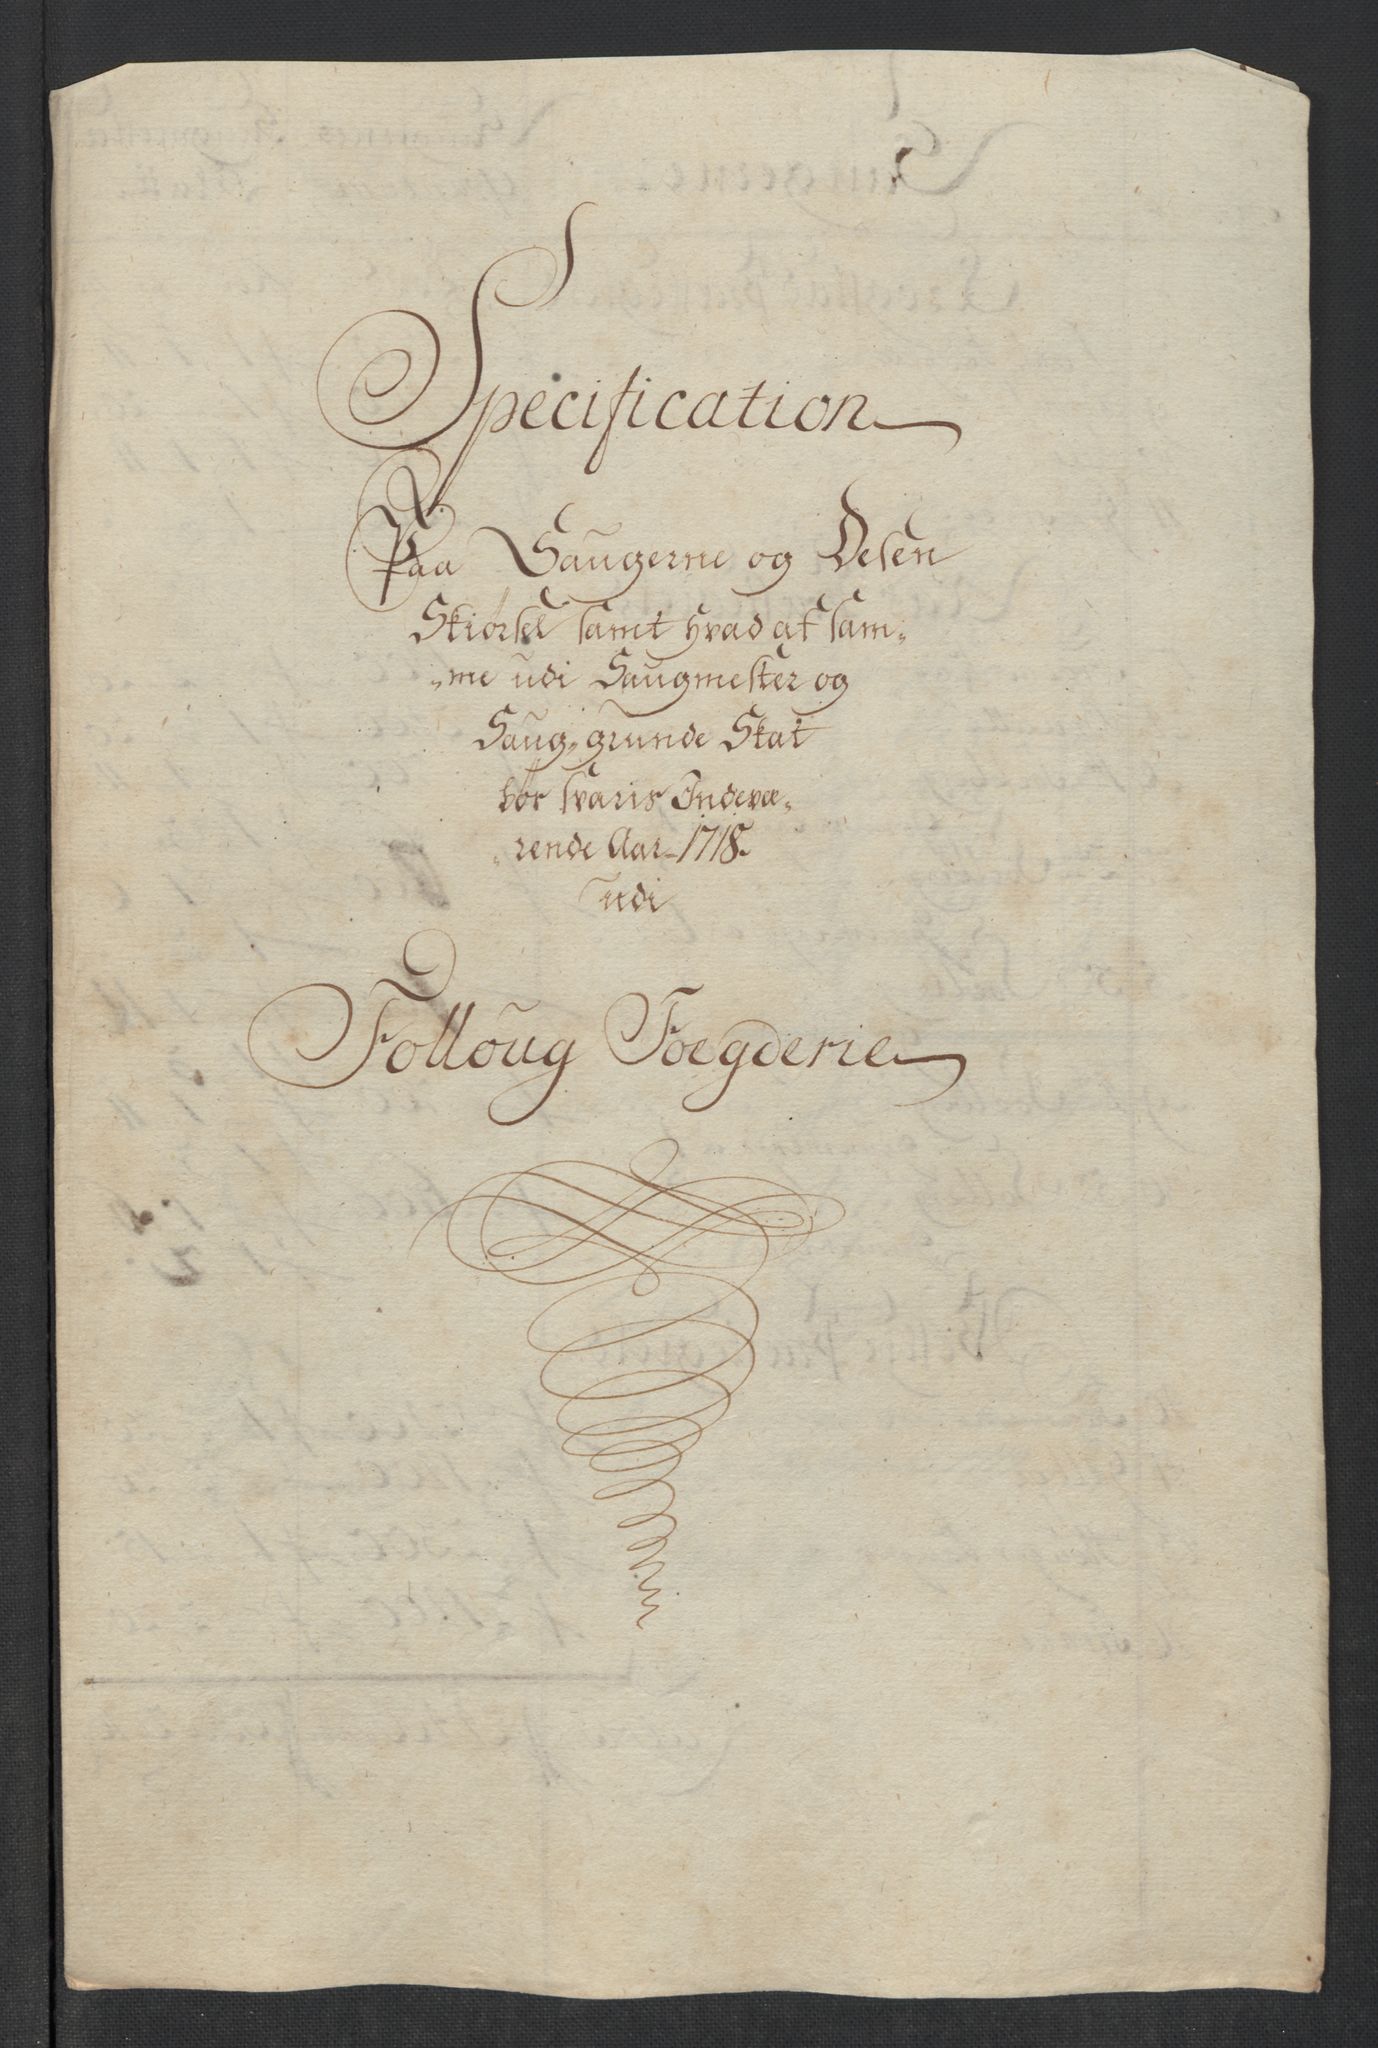 Specification
Paa Saugerne og Desen
Skiørsel samt hvad af sam„
„me udi Saugmester og
Saug„grunde Skat
bør svaris Indevæ„
„rende Aar 1718.
udi
Folloug Foegderie